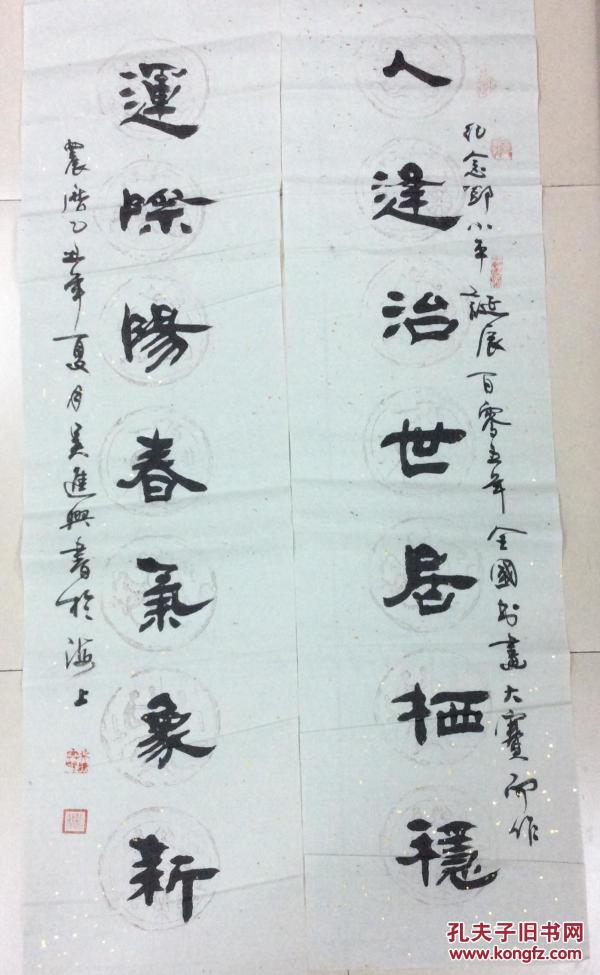 纪念鄧小平誕辰百零五年全國书畫大賽而作
人逢治世居栖穩
運際陽春氣象新
農曆己丑年夏月吴進興書於海上
孔夫子旧书网
www.kongfz.com